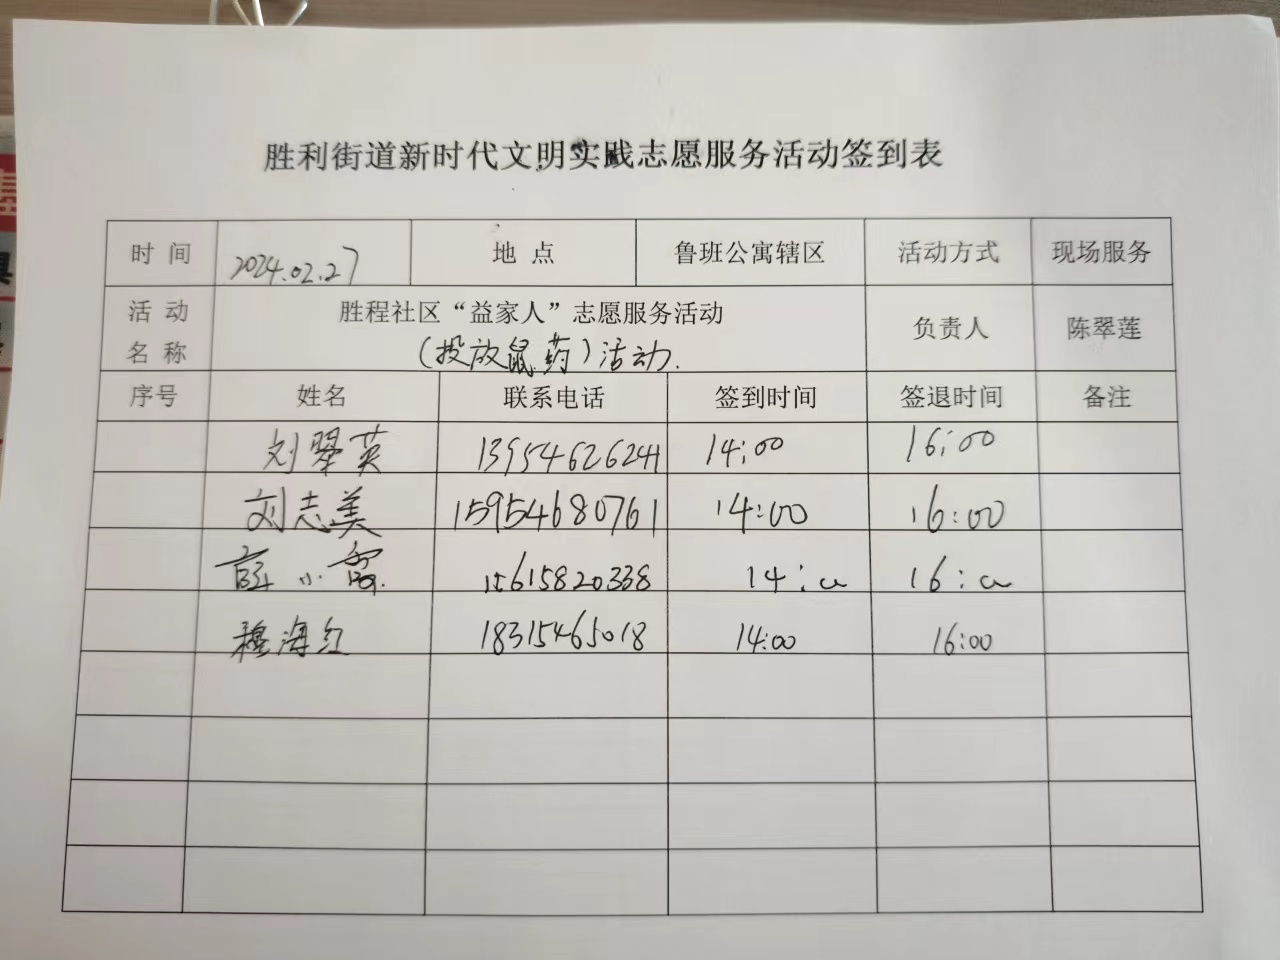 胜利街道新时代文明实践志愿服务活动签到表
时间 2024.02.27 地点 鲁班公寓辖区 活动方式 现场服务
活动名称 胜程社区“益家人”志愿服务活动 负责人 陈翠莲
(投放鼠药)活动.
序号 姓名 联系电话 签到时间 签退时间 备注
刘翠英 13954626241 14:00 16:00
刘志美 15954680761 14:00 16:00
薛小霞 15615820338 14:00 16:00
穆海红 18315465018 14:00 16:00